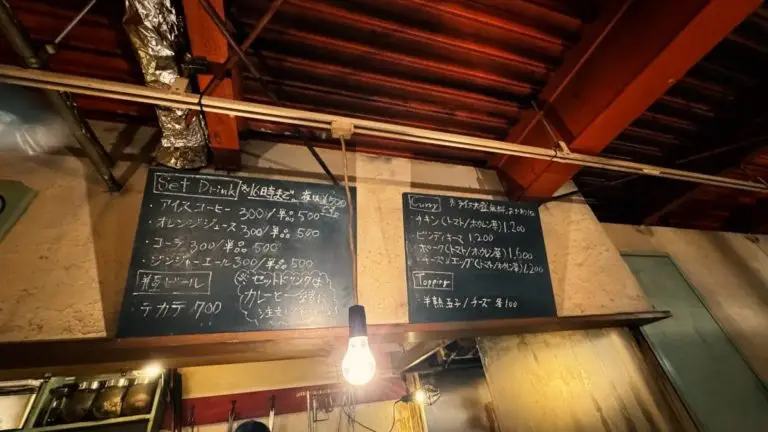 Set Drink ※16時まで。
・アイスコーヒー 300/単品500
・オレンジジュース 300/単品500
・コーラ 300/単品500
・ジンジャーエール 300/単品500
瓶ビール
・テカテ 700
※セットドリンクは
カレーと一緒に
Curry ※ライス大盛無料。
・チキン(トマト/ホウレン草)1,200
・ビンディキーマ 1,200
・ポーク(トマト/ホウレン草)1,500
(トマト/ホウレン草)1,200
Topping
・半熟玉子/チーズ 各100